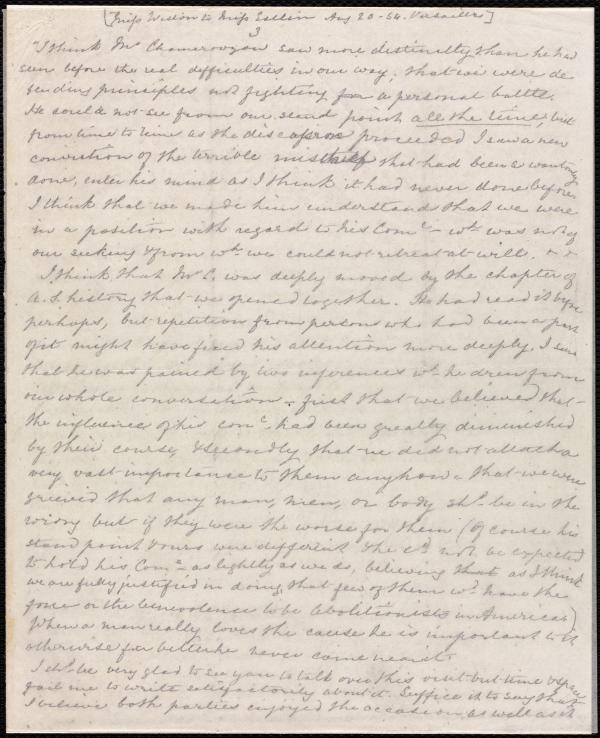 [Miss Weston to Miss Estlin Aug 20-54. Versailles]
3
"I think Mr Chamerovzow saw more distinctly than he had
seen before the real difficulties in our way. That we were de
fending principles not fighting for a personal battle.
He could not see from our stand point all the time, but
from time to time as the discourse proceeded I saw a new
conviction of the terrible mischief that had been so wantonly
done, enter his mind as I think it had never done before
I think that we made him understand that we were
in a position with regard to his Come - wh was not of
our seeking & from wh we could not retreat at will. & &
I think that Mr C. was deeply moved by the chapter of
A.S. history that we opened together. He had read it before
perhaps, but repetition from persons who had been a part
of it might have fixed his attention more deeply. I saw
that he was pained by two inferences wh he drew from
our whole conversation, first that we believed that
the influence of his come had been greatly diminished
by their course, & secondly that we did not attach a
very vast importance to them anyhow - that we were
grieved that any man, men, or body shd be in the
wrong but if they were the worse for them (of course his
stand point & ours were different & he cd not be expected
to hold his Come as lightly as we do, believing that as I think
we are fully justified in doing that few of them wd have the
force or the benevolence to be abolitionists in America)
When a man really loves the cause he is important to it
otherwise
I shd be very glad to see you to talk over this visit but time & space
fail me to write satisfactorily about it. Suffice it to say that
I believe both parties enjoyed the occasion as well as it